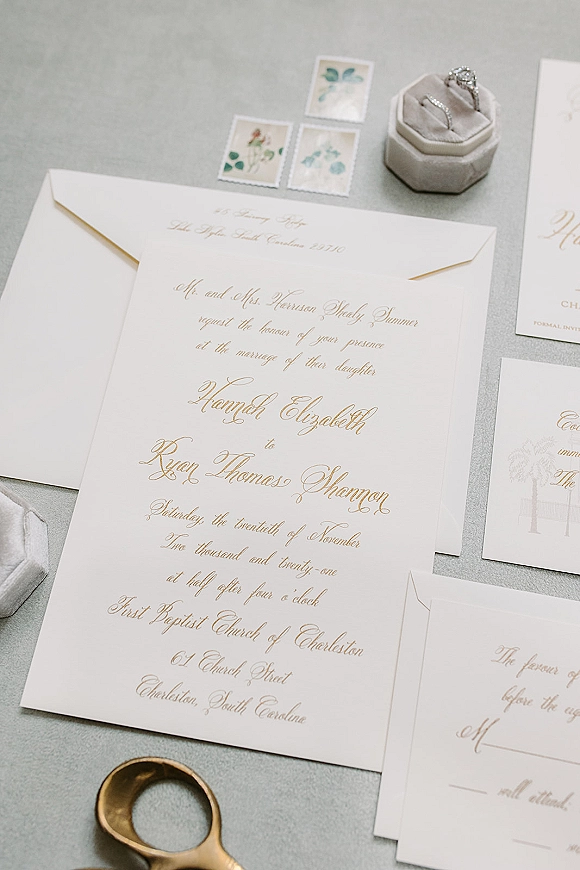 45 Fairway Ridge
Lake Wylie, South Carolina 29710
Mr. and Mrs. Harrison Shealy Summer
request the honour of your presence
at the marriage of their daughter
Hannah Elizabeth
to
Ryan Thomas Shannon
Saturday, the twentieth of November
Two thousand and twenty-one
at half after four o'clock
First Baptist Church of Charleston
61 Church Street
Charleston, South Carolina
The
The favour of
before the
M
will attend,